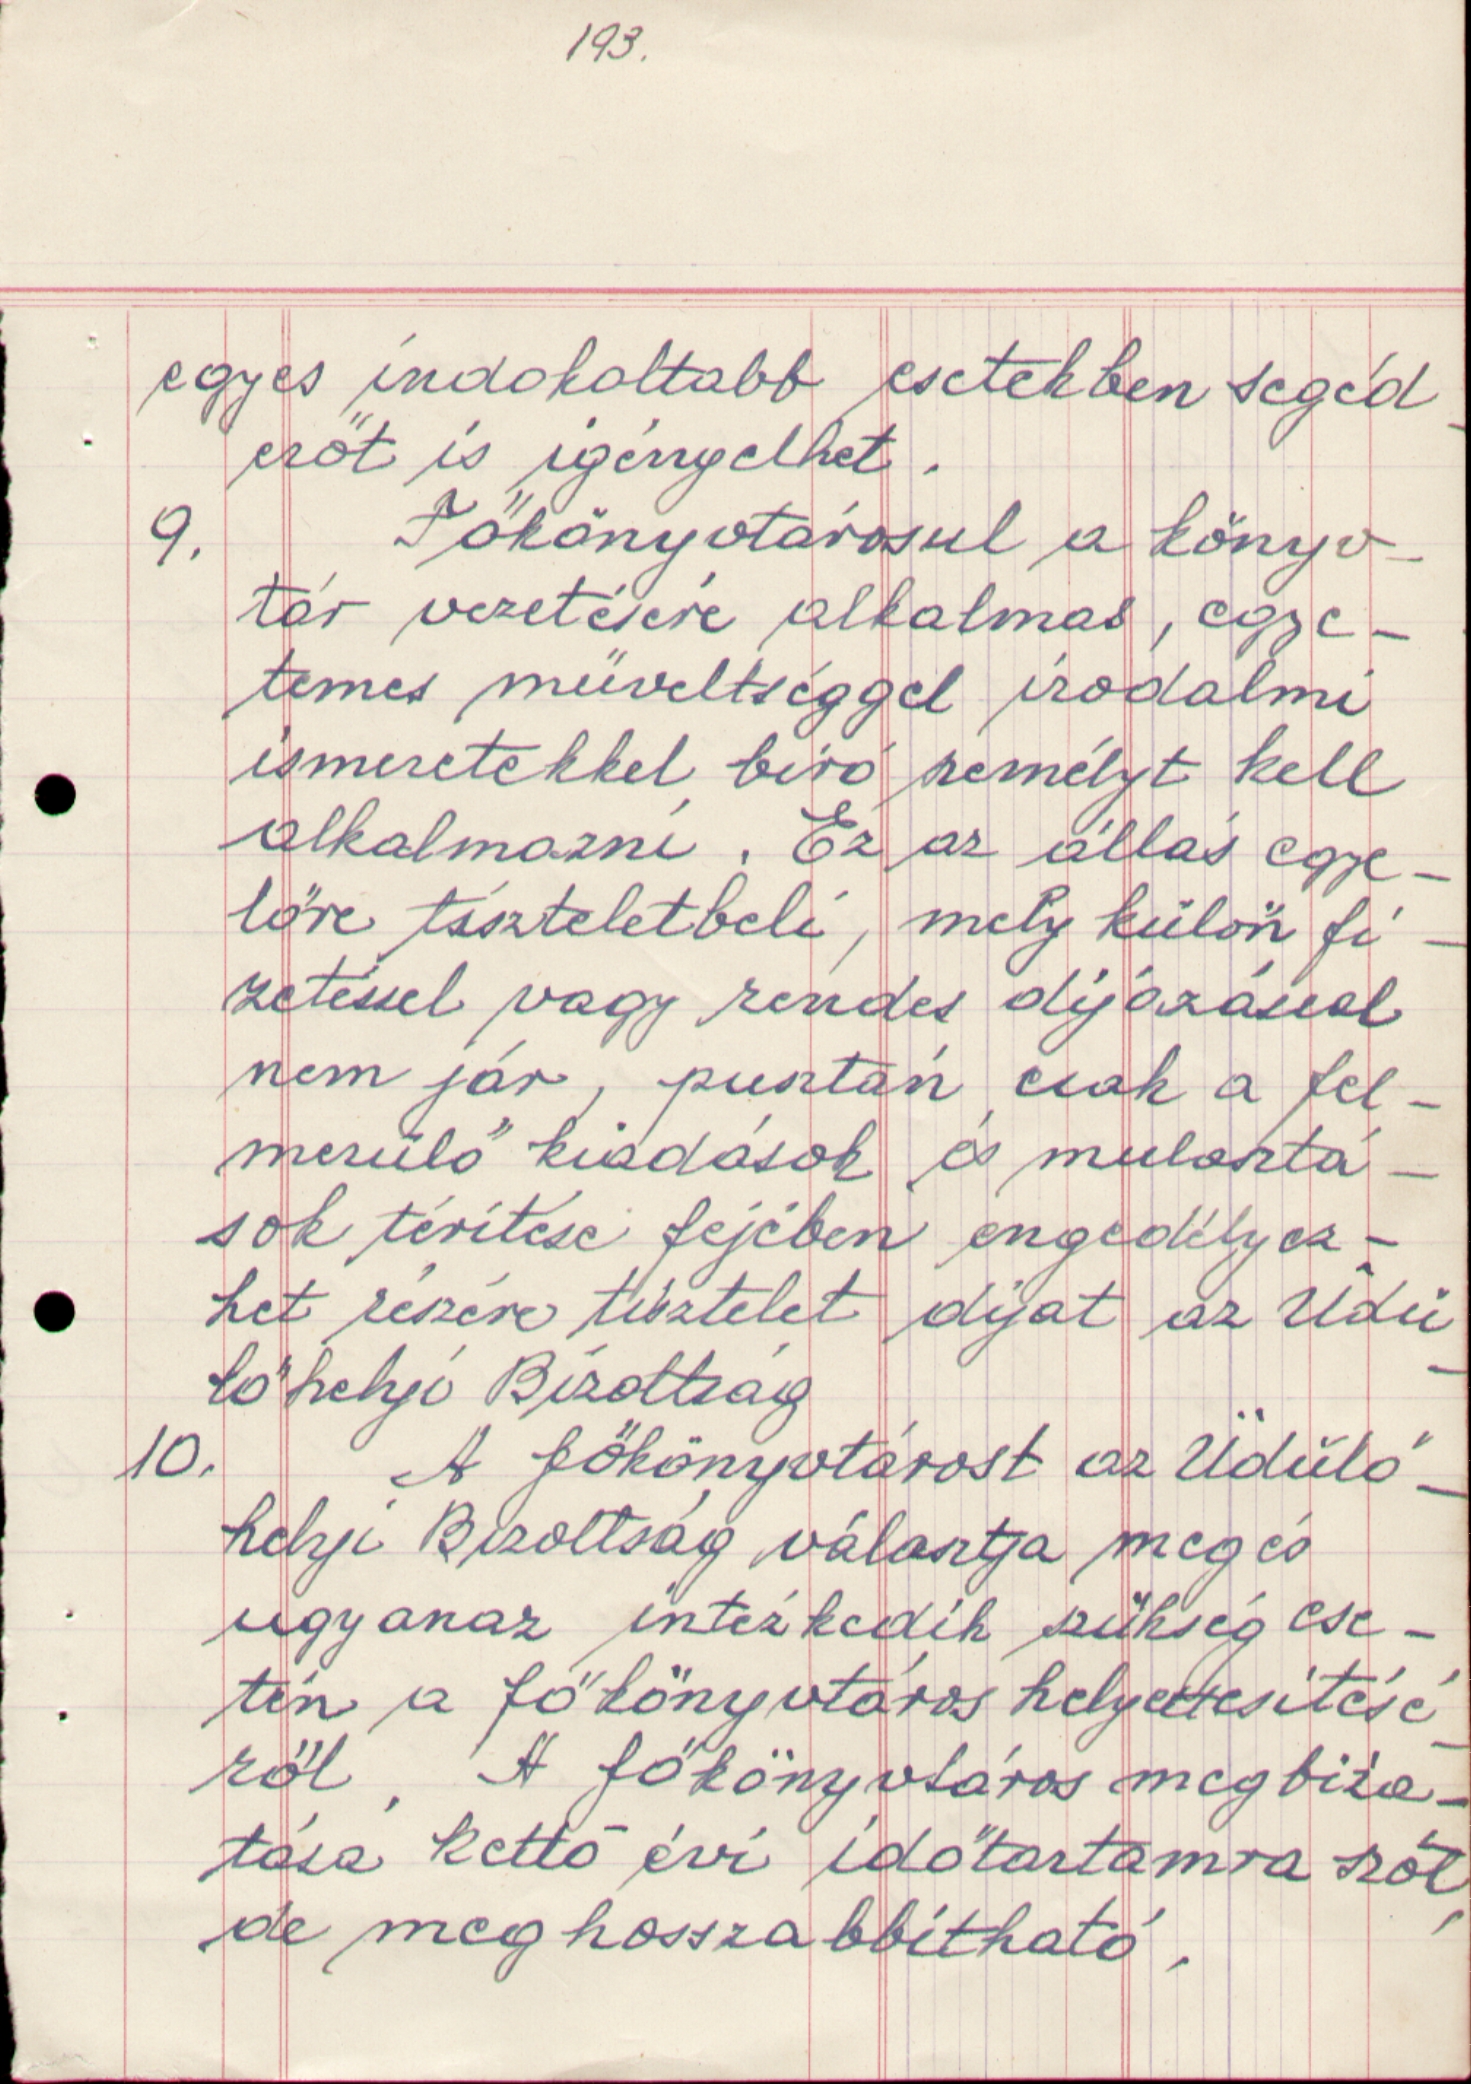 193.
egyes indokoltabb esetekben segéd_
erőt is igényelhet.
9. Főkönyvtárosul a könyv-
tár vezetésére alkalmas, egye-
temes műveltséggel irodalmi
ismeretekkel bíró személyt kell
alkalmazni. Ez az állás egye-
lőre tiszteletbeli, mely külön fi-
zetéssel vagy rendes díjazással
nem jár, pusztán csak a fel-
merülő kiadások és mulasztá-
sok térítése fejében engedélyez-
het részére tisztelet díjat az Üdü_
lőhelyi Bizottság
10. A főkönyvtárost az Üdülő_
helyi Bizottság választja meg és
ugyanaz intézkedik szükség ese-
tén a főkönyvtáros helyettesítésé_
ről. A főkönyvtáros megbiza-
tása kettő évi időtartamra szól,
de meghosszabbítható.